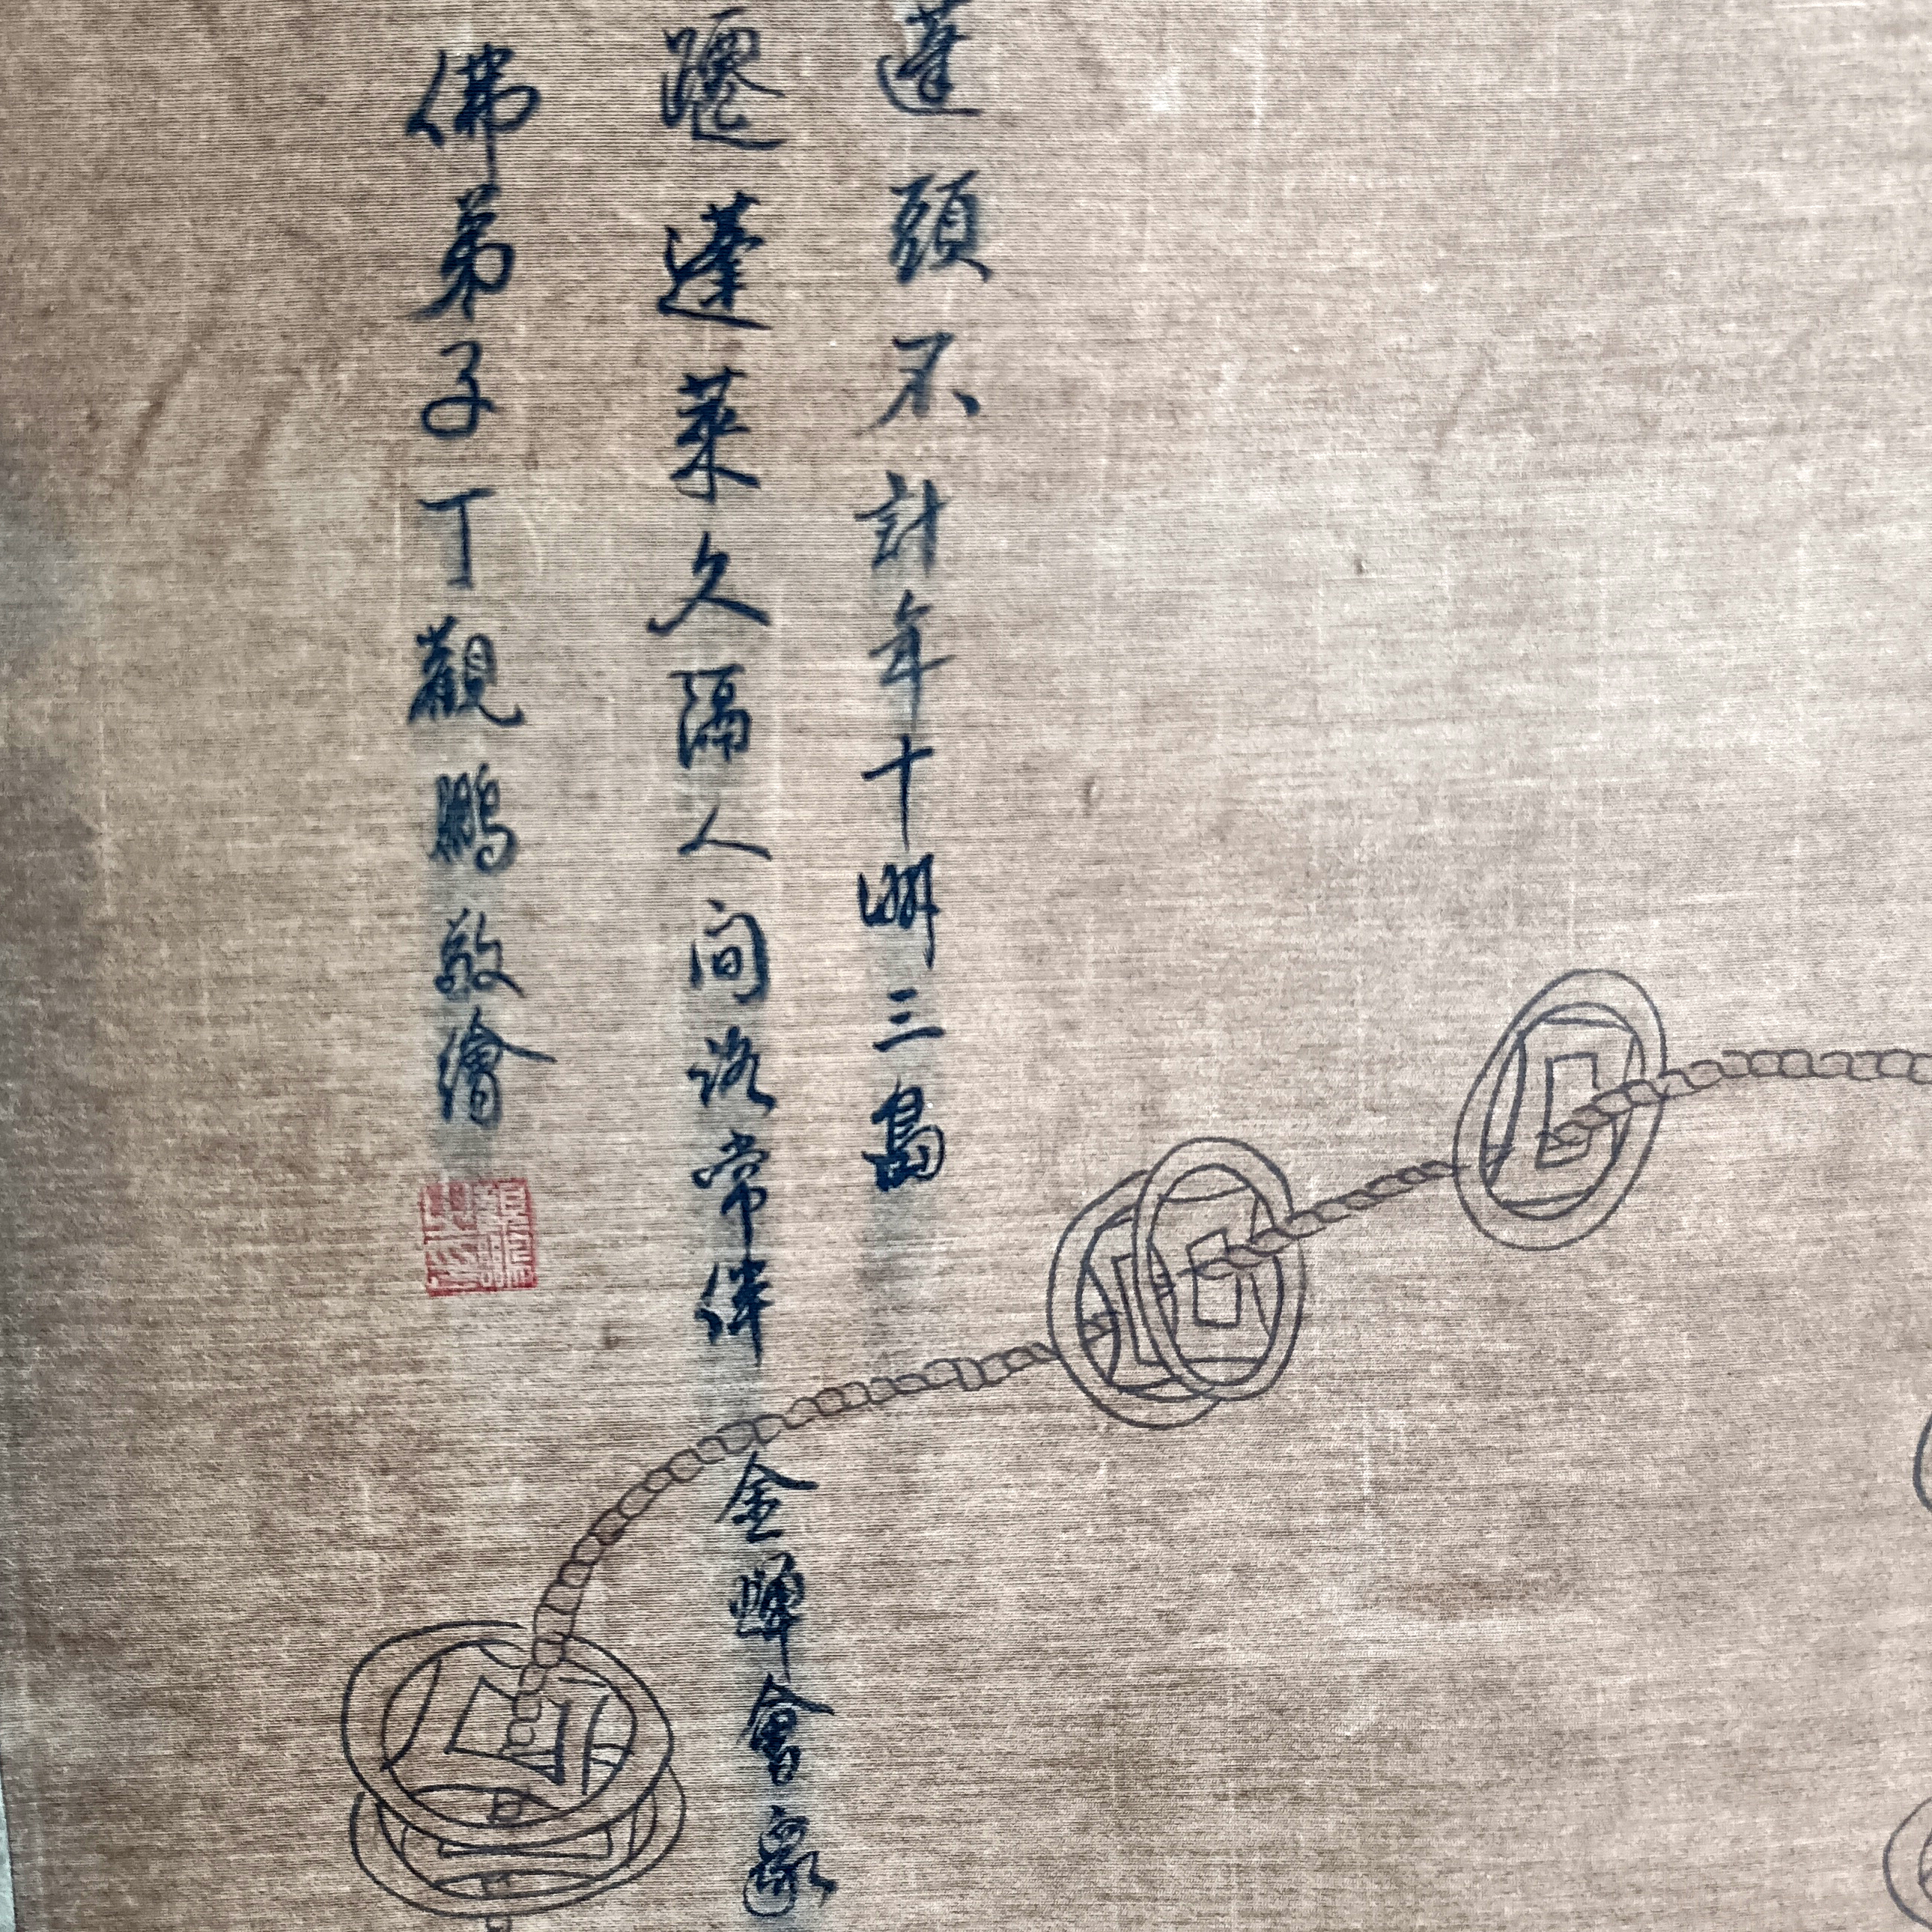 蓬頭不計年十洲三島
躚蓬萊久隔人間路常伴金蟬會
佛弟子丁觀鵬敬繪